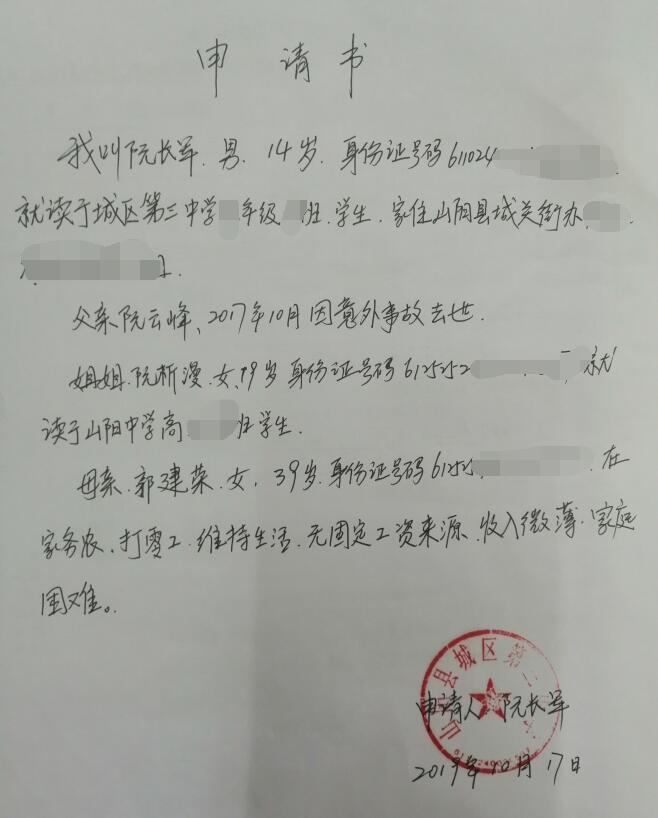 申请书
我叫阮长军.男.14岁.身份证号码611024
就读于城区第三中学 年级 班.学生.家住山阳县城关街办
父亲.阮云峰、2017年10月因意外事故去世.
姐姐.阮析漫.女、19岁身份证号码612522 就
读于山阳中学高 班学生.
母亲.郭建荣.女.39岁.身份证号码6125 .在
家务农.打零工.维持生活.无固定工资来源.收入微薄.家庭
困难。
县城区第
申请人:阮长军
2019年10月17日